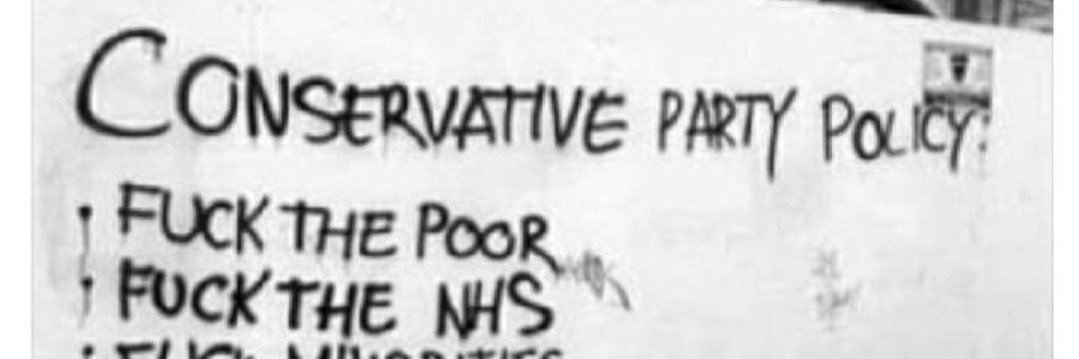 CONSERVATIVE PARTY POLICY:
• FUCK THE POOR
• FUCK THE NHS
• FUCK MINORITIES